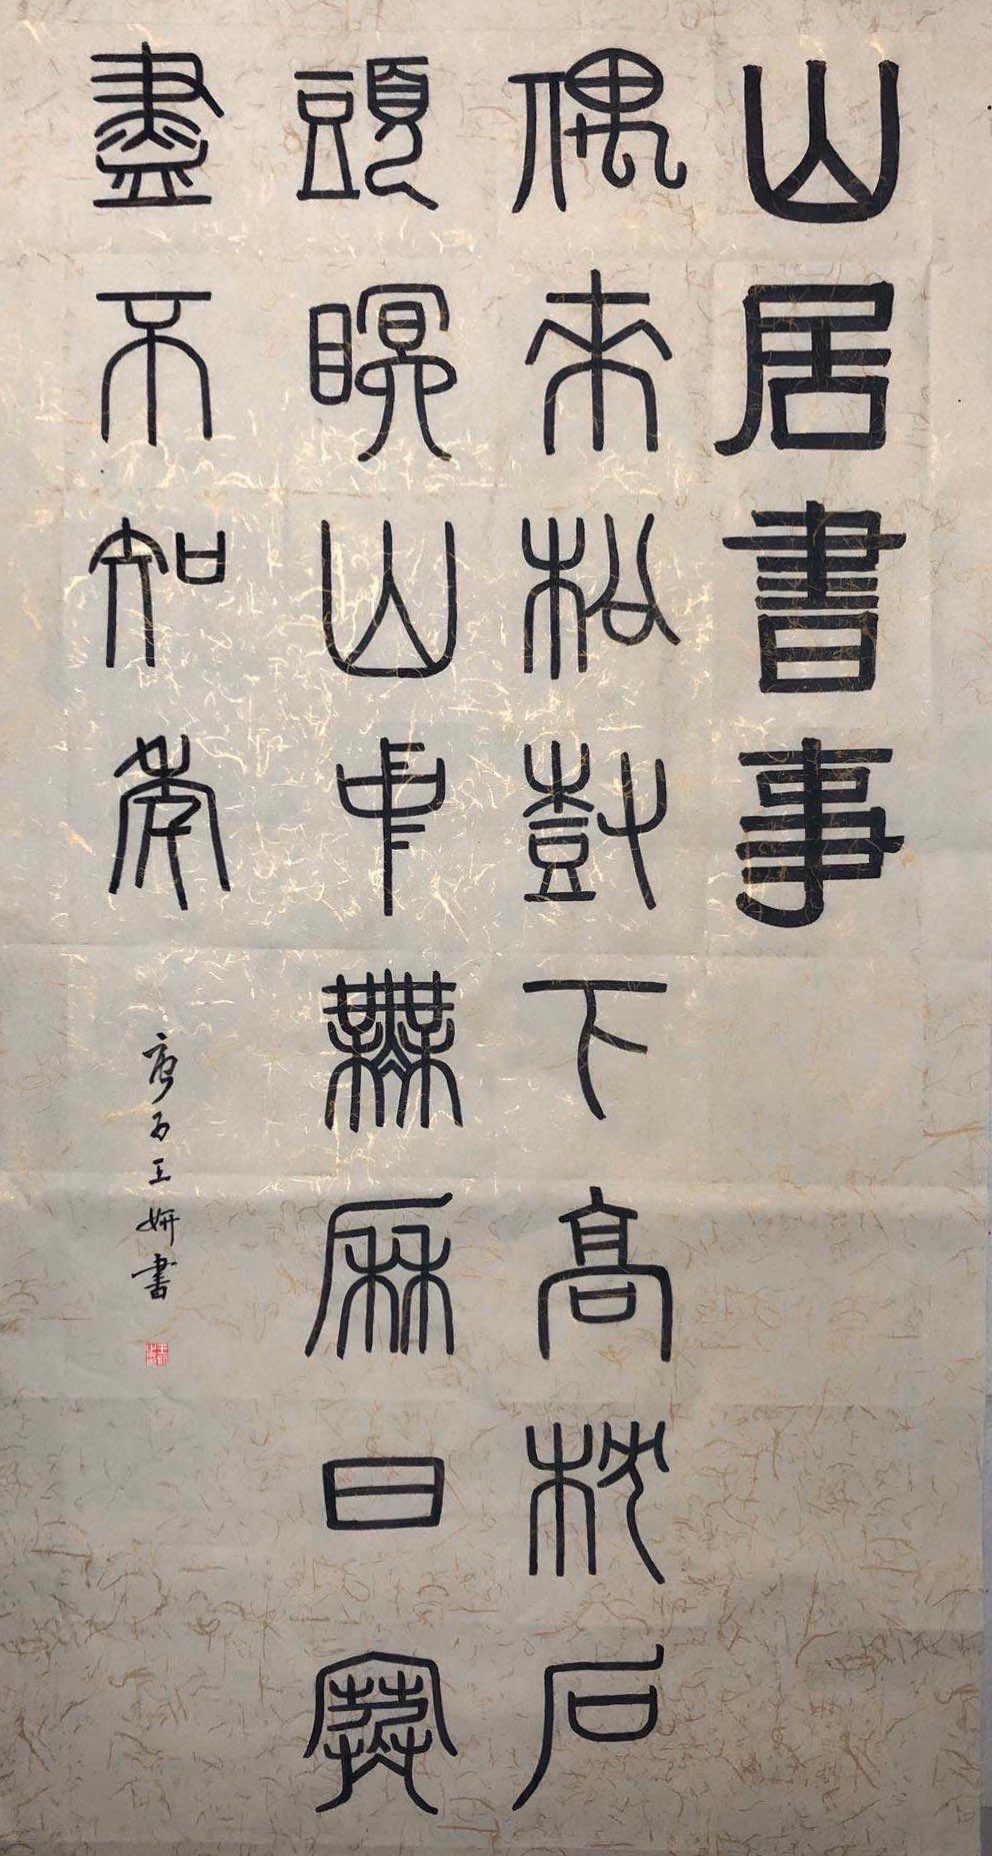 山居書事
偶來松尌下高枕石
頭瞑山中無厤日寒
盡不知年
庚子王妍書